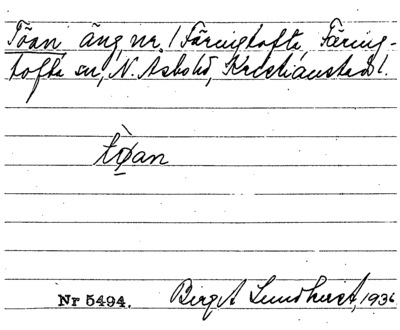 Töan äng, nr. 1 Färingtofta, Färing-
tofta sn, N. Åsbo hd, Kristianstads l.
tø̀an
Nr 5494. Birgit Lundhurst, 1936